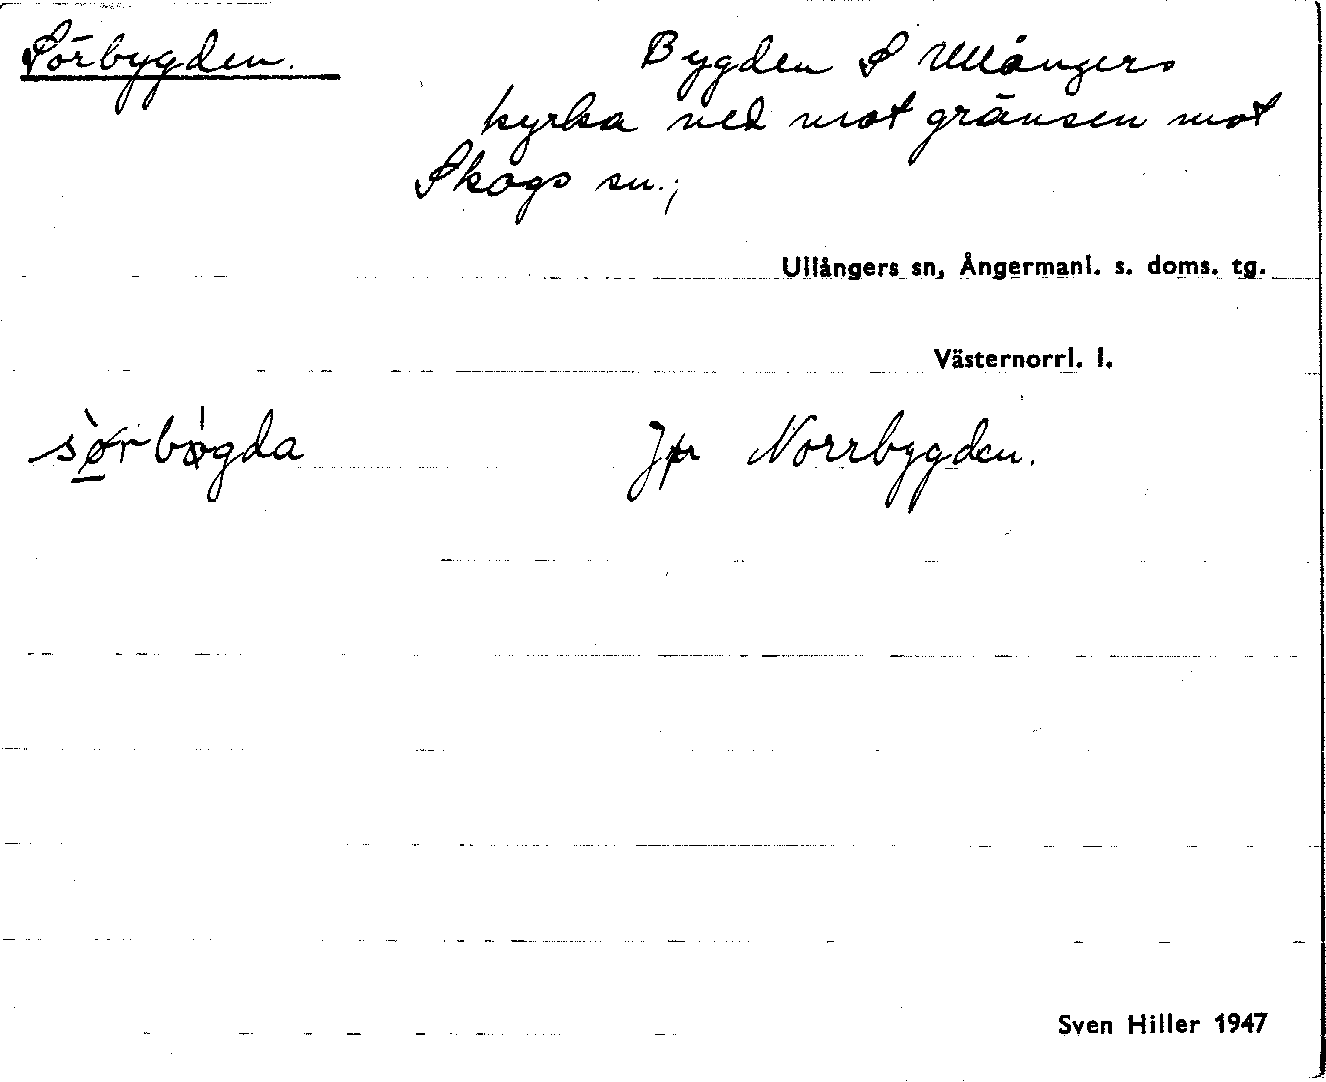 Sörbygden.
Bygden S Ullångers
kyrka ned mot gränsen mot
Skogs sn.;
Ullångers sn, Ångermanl. s. doms. tg.
Västernorrl. l.
sø̀rbø̍gda
Jfr Norrbygden.
Sven Hiller 1947